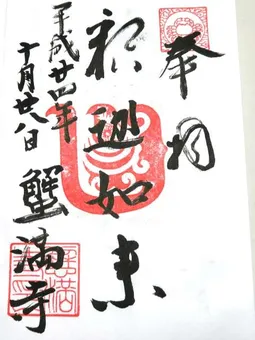 奉拝
釈迦如来
平成廿四年
十月廿八日
蟹満寺